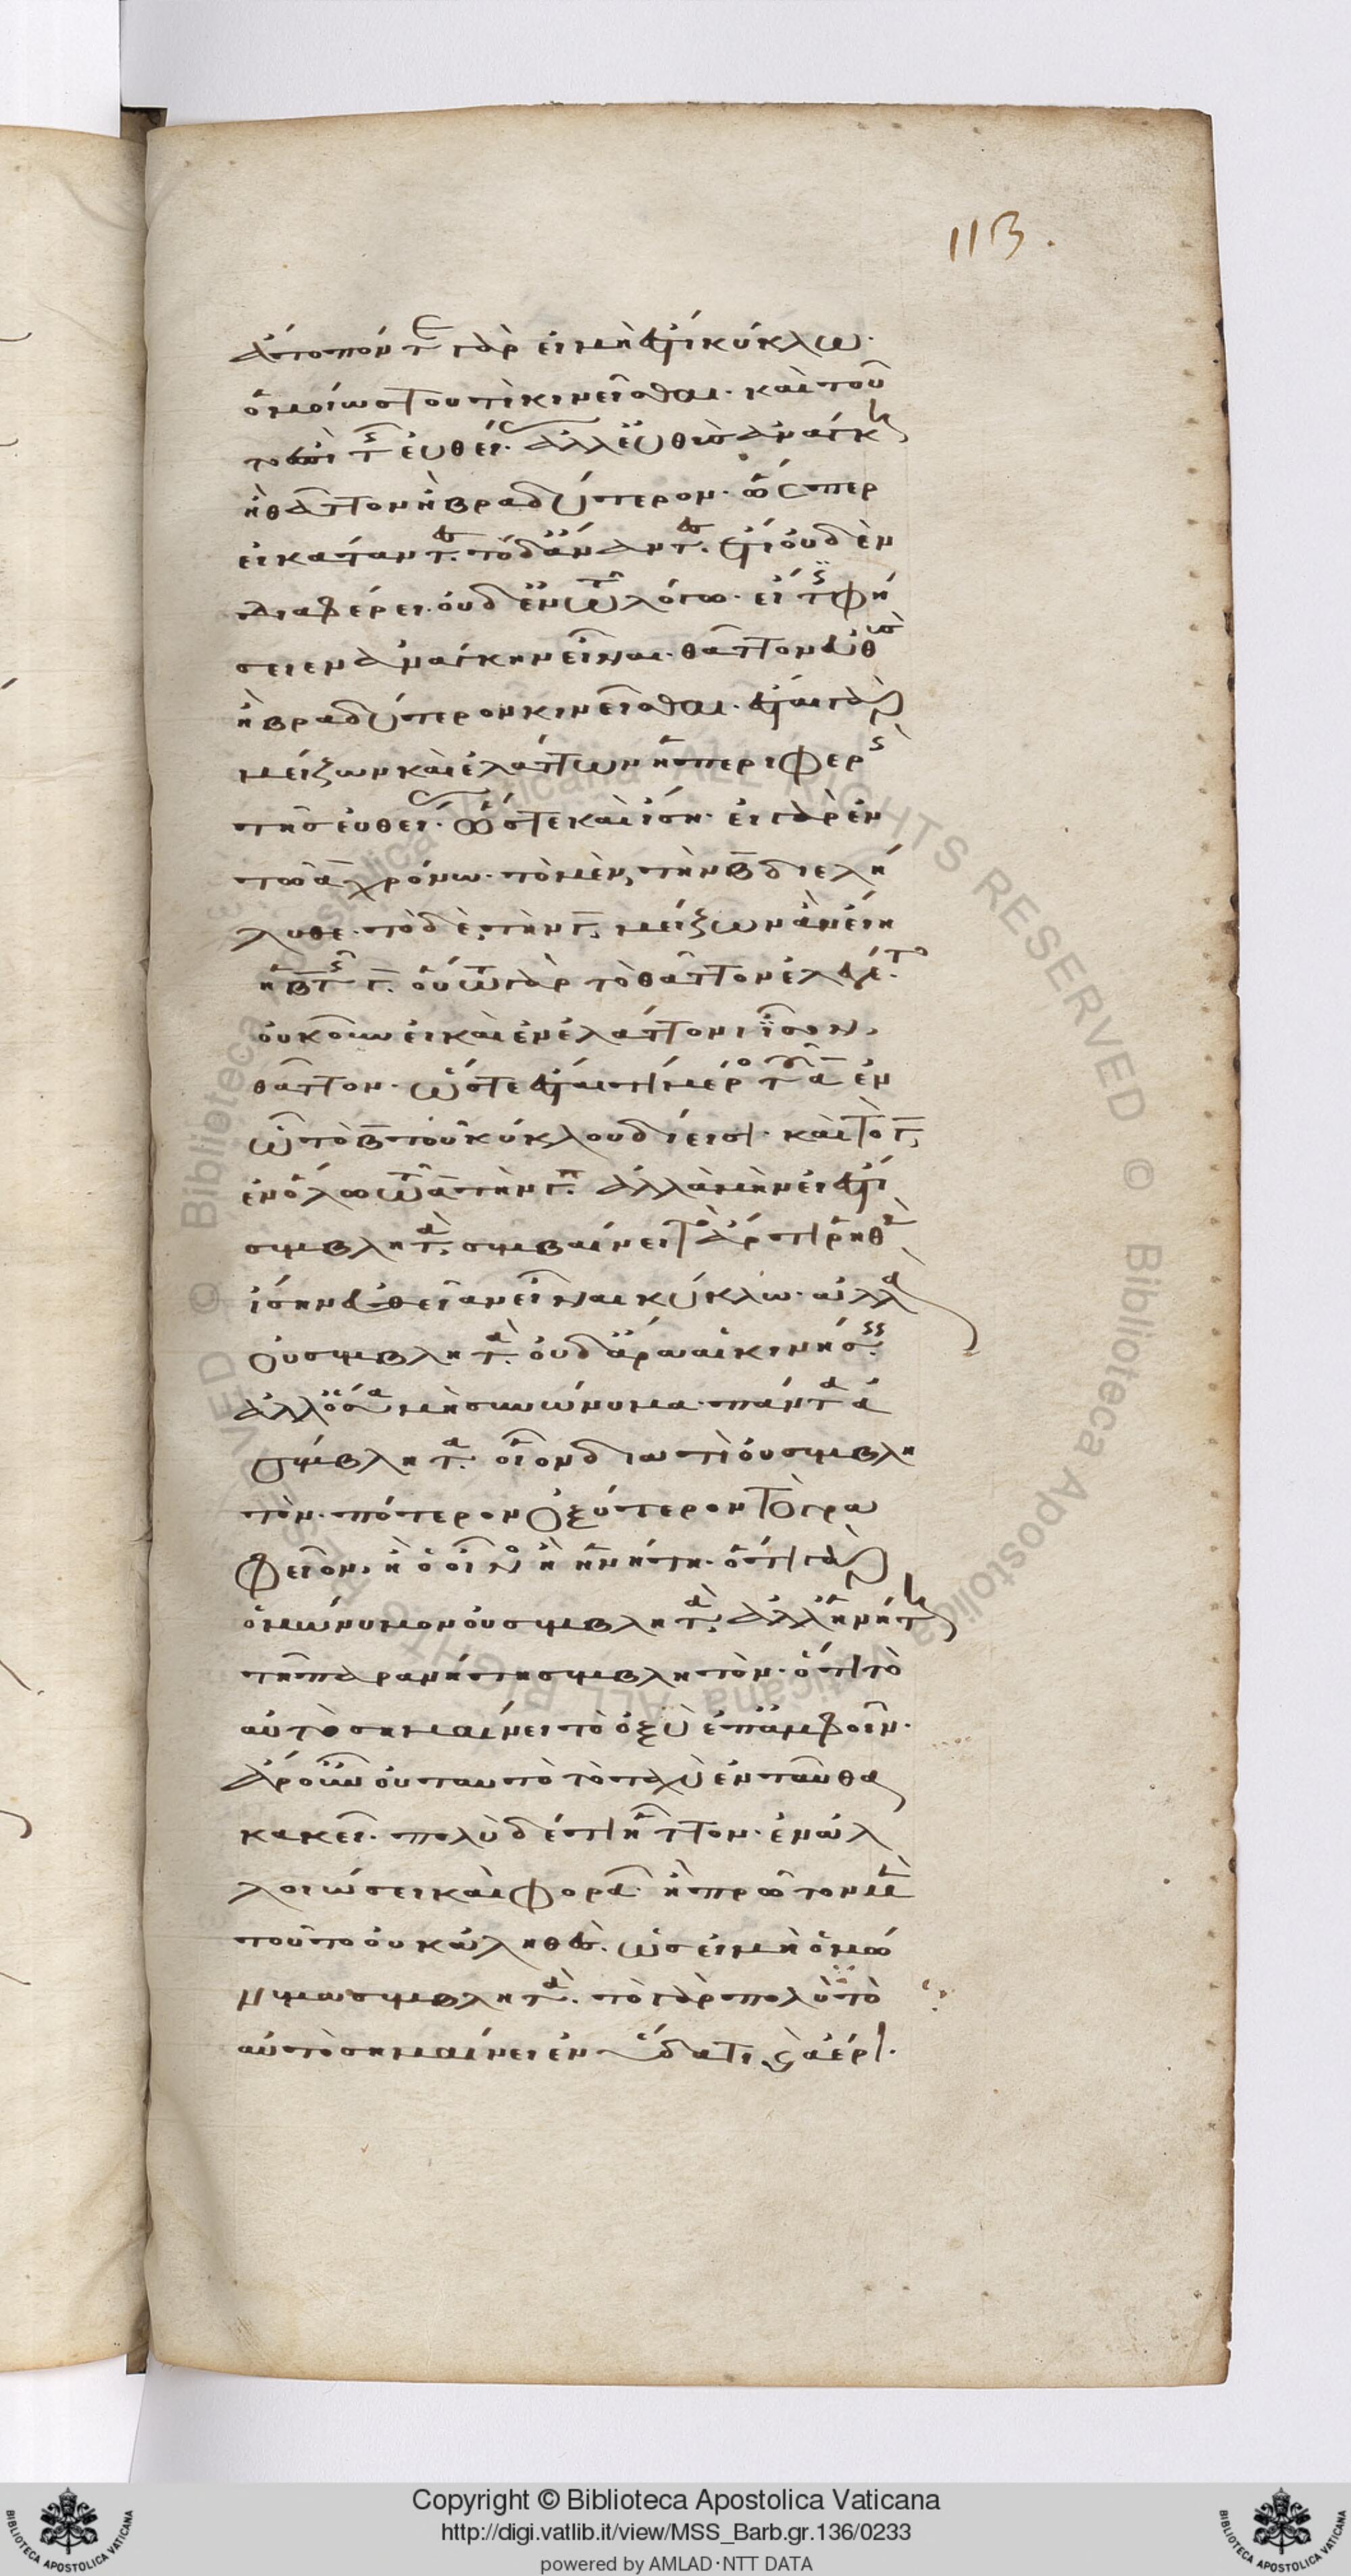 ἄτοπόν τε γὰρ εἰ μὴ ἔστι κύκλω·
ὁμοίως τουτὶ κινεῖσθαι· καὶ του
τοὶ ἐπὶ τῆς εὐθείας· ἀλλ' εὐθὺς ἀνάγκη
ἢ θᾶττον ἢ βραδύτερον· ὥσπερ
εἰ κάταντες· τὸ δ' ἄναντες· ἔτι οὐδὲν
διαφέρει οὐδὲν τῶ λόγω· εἴ τις φή
σειεν ἀνάγκην εἶναι θᾶττον εὐθὺς
ἢ βραδύτερον κινεῖσθαι· ἔσται γὰρ
μείζων καὶ ἐλάττων ἡ περιφερὴς
τῆς εὐθείας· ὥστε καὶ ἴση· εἰ γὰρ ἐν
τῶ α χρόνω· τὸ μὲν, τὴν β διελή
λυθε· τὸ δὲ, τὴν γ, μείζων ἂν εἴη
ἡ β τῆς γ· οὕτω γὰρ τὸ θᾶττον ἐλέγετο·
οὐκοῦν εἰ καὶ ἐν ἐλάττονι ἴσον,
θᾶττον· ὥστε ἔσται τι μέρος τοῦ α ἐν
ὧ τὸ β τοῦ κύκλου δίεισι· καὶ τὸ γ,
ἐν ὅλω τῶ α τὴν γ· ἀλλὰ μὴν εἰ ἔστι
συμβλητὰ, συμβαίνει τὸ ἄρτι ῥηθὲν
ἴσην εὐθεῖαν εἶναι κύκλω· ἀλλὰ
οὐ συμβλητὰ· οὐδ' ἄρα αἱ κινήσεις·
ἀλλ' ὅσα μὴ συνώνυμα· πάντα ἀ
σύμβλητα· οἷον διατὶ οὐ συμβλη
τὸν· πότερον ὀξύτερον τὸ γρα
φεῖον, ἢ ὁ οἶνος ἢ ἡ νήτη· ὅτι γὰρ
ὁμώνυμον οὐ συμβλητὰ, ἀλλ' ἡ νήτη
τῆ παρανήτη συμβλητὸν· ὅτι τὸ
αὐτὸ σημαίνει τὸ ὀξὺ ἐπ' ἀμφοῖν·
ἆρ' οὖν οὐ ταυτὸ τὸ ταχὺ ἐνταῦθα
κακεῖ· πολὺ δ' ἔτι ἧττον· ἐν ἀλ
λοιώσει καὶ φορᾶ· ἢ πρῶτον μὲν
τοῦτο οὐκ ἀληθὲς· ὡς εἰ μὴ ὁμώ
νυμα συμβλητὰ· τὸ γὰρ πολὺ τὸ
αὐτὸ σημαίνει ἐν ὕδατι καὶ ἀέρι·
113.
Copyright © Biblioteca Apostolica Vaticana
http://digi.vatlib.it/view/MSS_Barb.gr.136/0233
powered by AMLAD·NTT DATA